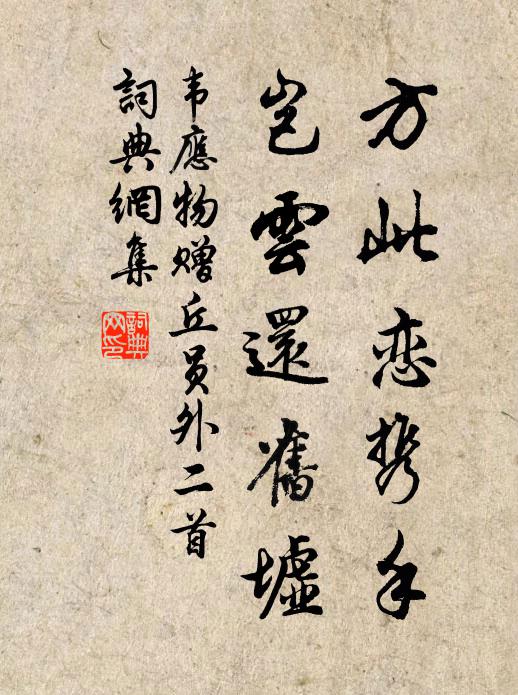 方此恋携手
岂雲還舊墟
韦應物赠丘员外二首
詞典網集
詞典
网印